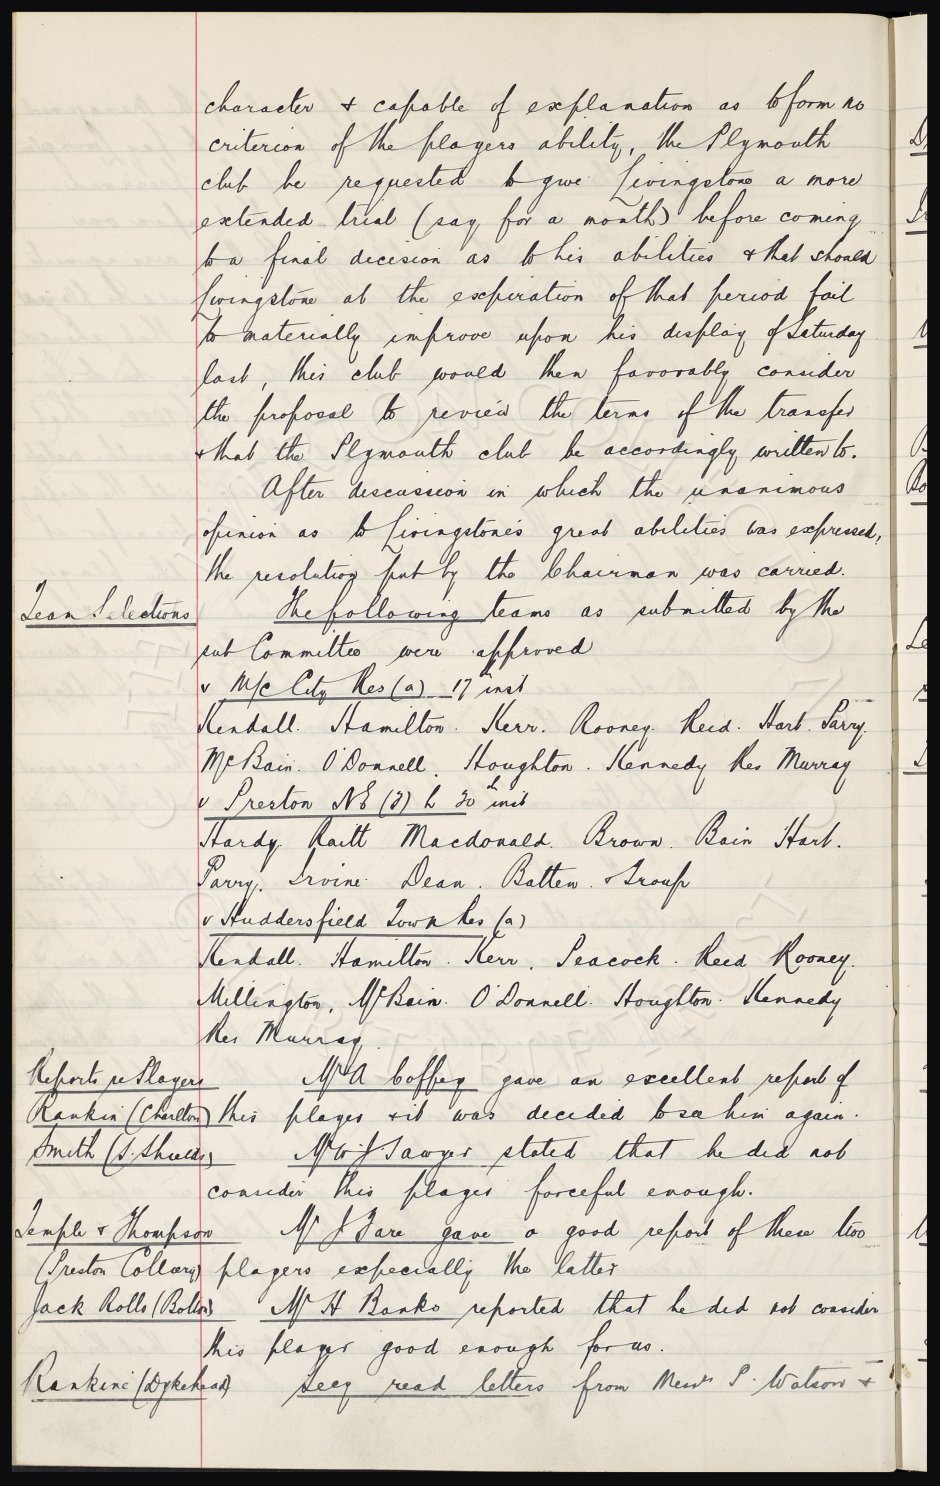 character & capable of explanation as to form no
criterion of the players ability, the Plymouth
club be requested to give Livingstone a more
extended trial (say for a month) before coming
to a final decision as to his abilities & that should
Livingstone at the expiration of that period fail
to materially improve upon his display of Saturday
last, this club would then favorably consider
the proposal to review the terms of the transfer
& that the Plymouth club be accordingly written to.
After discussion in which the unanimous
opinion as to Livingstone's great abilities was expressed,
the resolution put by the Chairman was carried.
Team Selections The following teams as submitted by the
sub Committee were approved
v M/c City Res (a) 17th inst
Kendall. Hamilton. Kerr. Rooney. Reid. Hart. Parry.
McBain. O'Donnell. Houghton. Kennedy Res Murray
v Preston NE (3) h 20th inst
Hardy. Raitt Macdonald. Brown. Bain Hart.
Parry. Irvine. Dean. Batten. & Troup
v Huddersfield Town Res (a)
Kendall. Hamilton. Kerr. Peacock. Reid Rooney.
Millington, McBain. O'Donnell. Houghton. Kennedy
Res Murray.
Reports re Players Mr A Coffey gave an excellent report of
Rankin (Charlton) this player & it was decided to see him again.
Smith (S. Shields) Mr W J Sawyer stated that he did not
consider this player forceful enough.
Temple & Thompson Mr J Fare gave a good report of these two
(Preston Colliery) players expecially the latter
Jack Rolls (Bolton) Mr H Banks reported that he did not consider
this player good enough for us.
Rankine (Dykehead) Secy read letters from Messrs P. Watson &